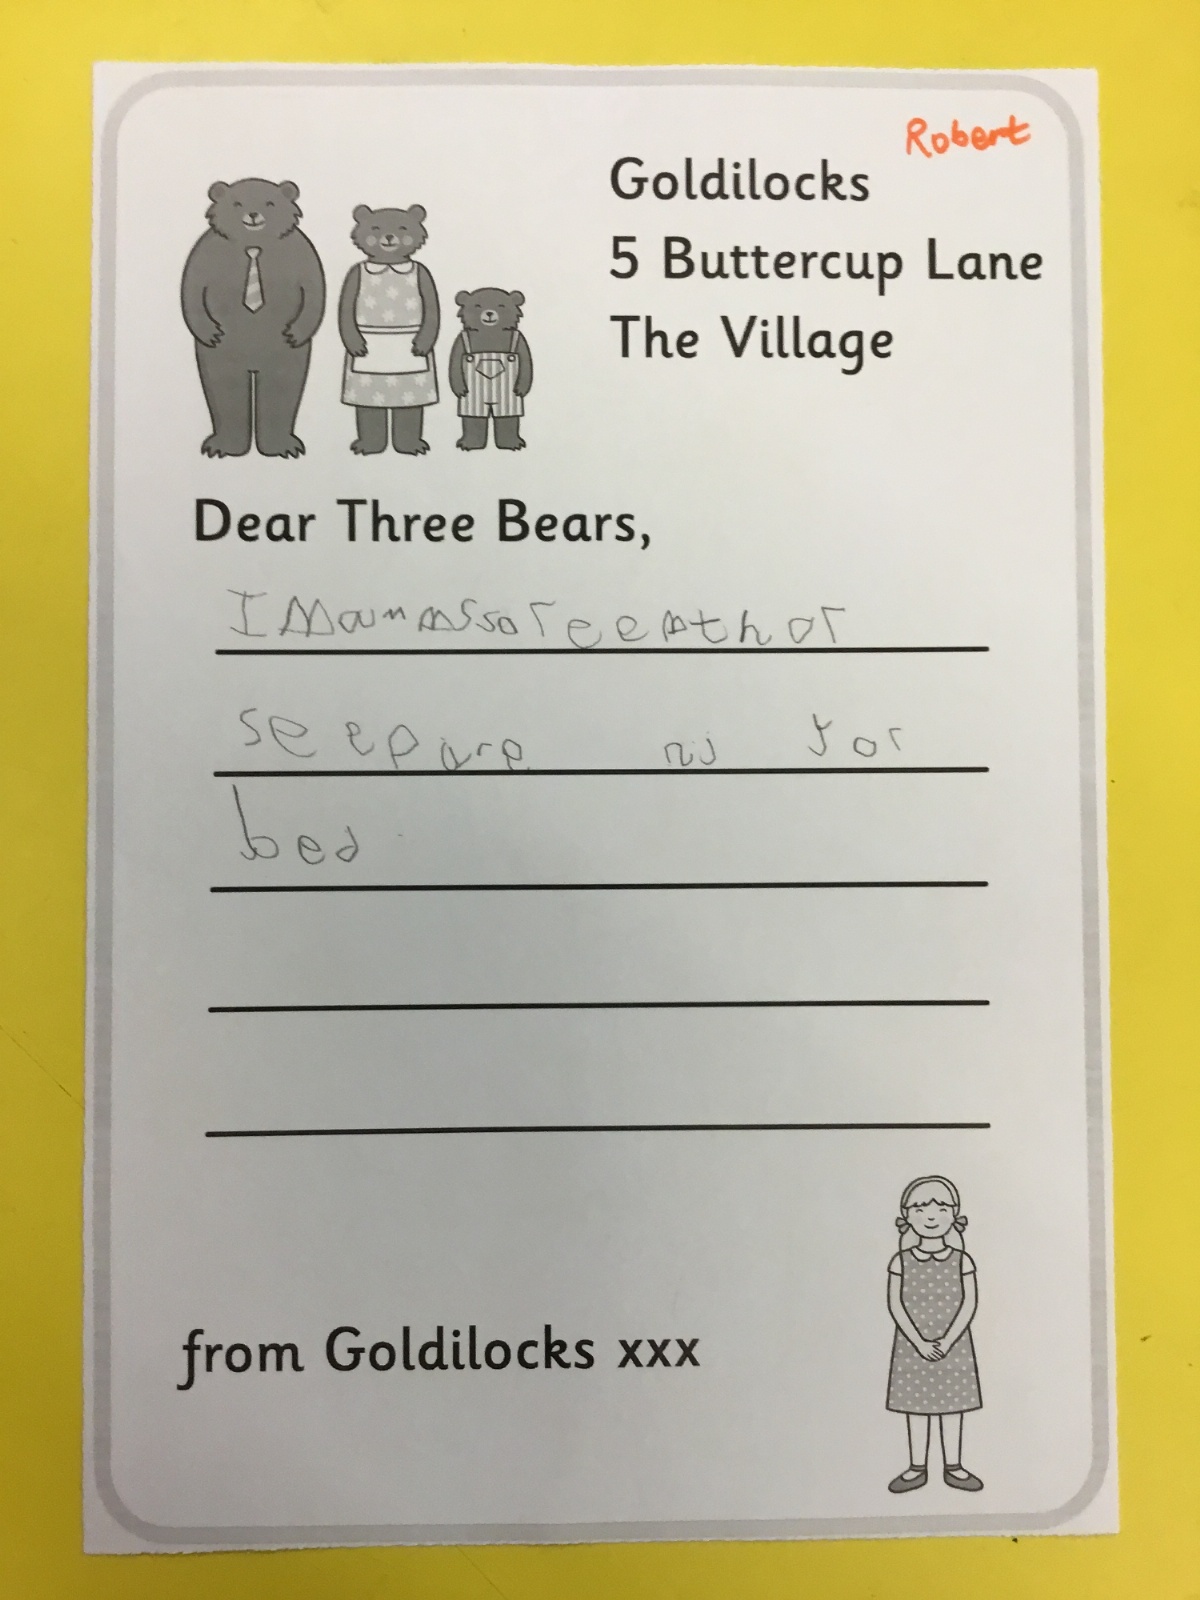 Robert
Goldilocks
5 Buttercup Lane
The Village
Dear Three Bears,
seepare ni yor
bed
from Goldilocks xxx